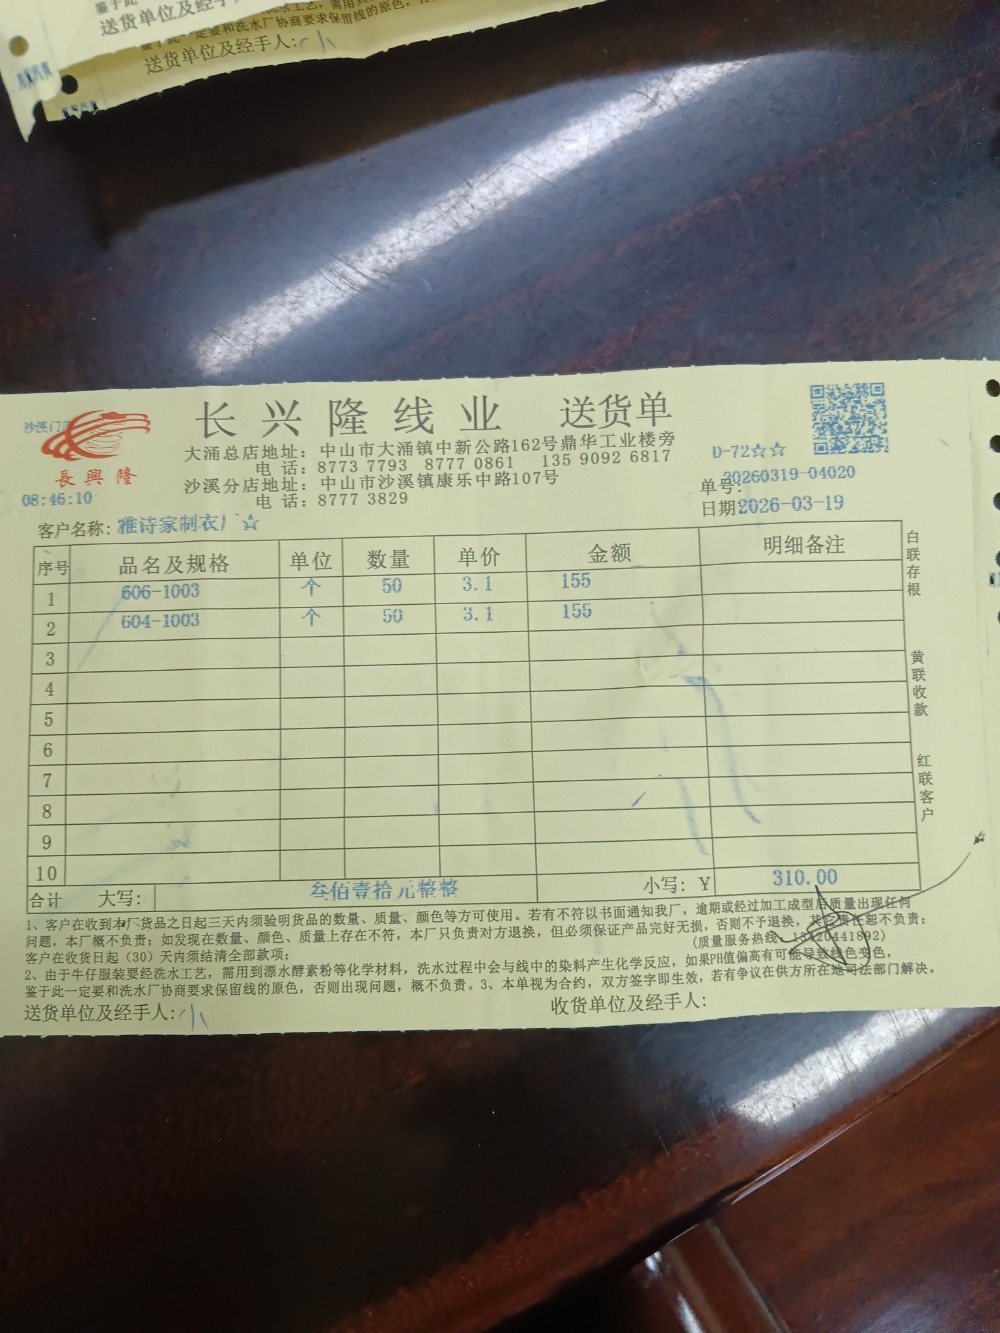 送货单位及经手人:
鉴于此一定要和洗水厂协商要求保留线的原色，
送货单位及经手人: 小
沙溪门
長興隆
08:46:10
长兴隆线业 送货单
大涌总店地址：中山市大涌镇中新公路162号鼎华工业楼旁
电话：8773 7793 8777 0861 135 9092 6817
沙溪分店地址：中山市沙溪镇康乐中路107号
电话：8777 3829
D-72☆☆
单号: 20260319-04020
日期: 2026-03-19
客户名称: 雅诗家制衣厂☆
序号 品名及规格 单位 数量 单价 金额 明细备注
1 606-1003 个 50 3.1 155
2 604-1003 个 50 3.1 155
3
4
5
6
7
8
9
10
合计 大写: 叁佰壹拾元整整 小写: ￥ 310.00
白联存根
黄联收款
红联客户
1、客户在收到本厂货品之日起三天内须验明货品的数量、质量、颜色等方可使用。若有不符以书面通知我厂，逾期或经过加工成型后质量出现任何
问题，本厂概不负责；如发现在数量、颜色、质量上存在不符，本厂只负责对方退换，但必须保证产品完好无损，否则不予退换，其它责任恕不负责；
客户在收货日起（30）天内须结清全部款项； (质量服务热线: 13420441892)
2、由于牛仔服装要经洗水工艺，需用到漂水酵素粉等化学材料，洗水过程中会与线中的染料产生化学反应，如果PH值偏高有可能导致线色变色，
鉴于此一定要和洗水厂协商要求保留线的原色，否则出现问题，概不负责。3、本单视为合约，双方签字即生效，若有争议在供方所在地司法部门解决。
送货单位及经手人: 小 收货单位及经手人: